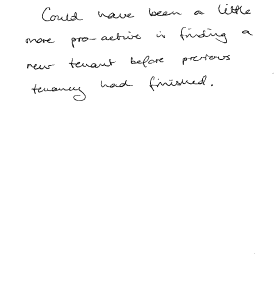 Could have been a little
more pro-active is finding a
new tenant before previous
tenancy had finished.